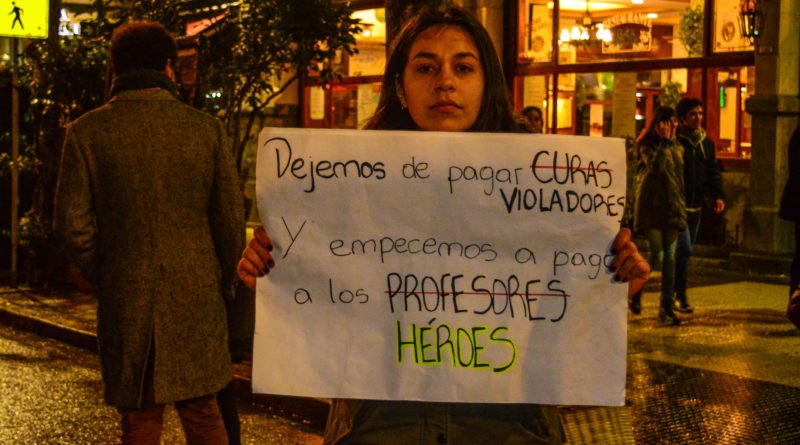 RESTAURANT
Dejemos de pagar CURAS
VIOLADORES
Y empecemos a paga
a los PROFESORES
HÉROES